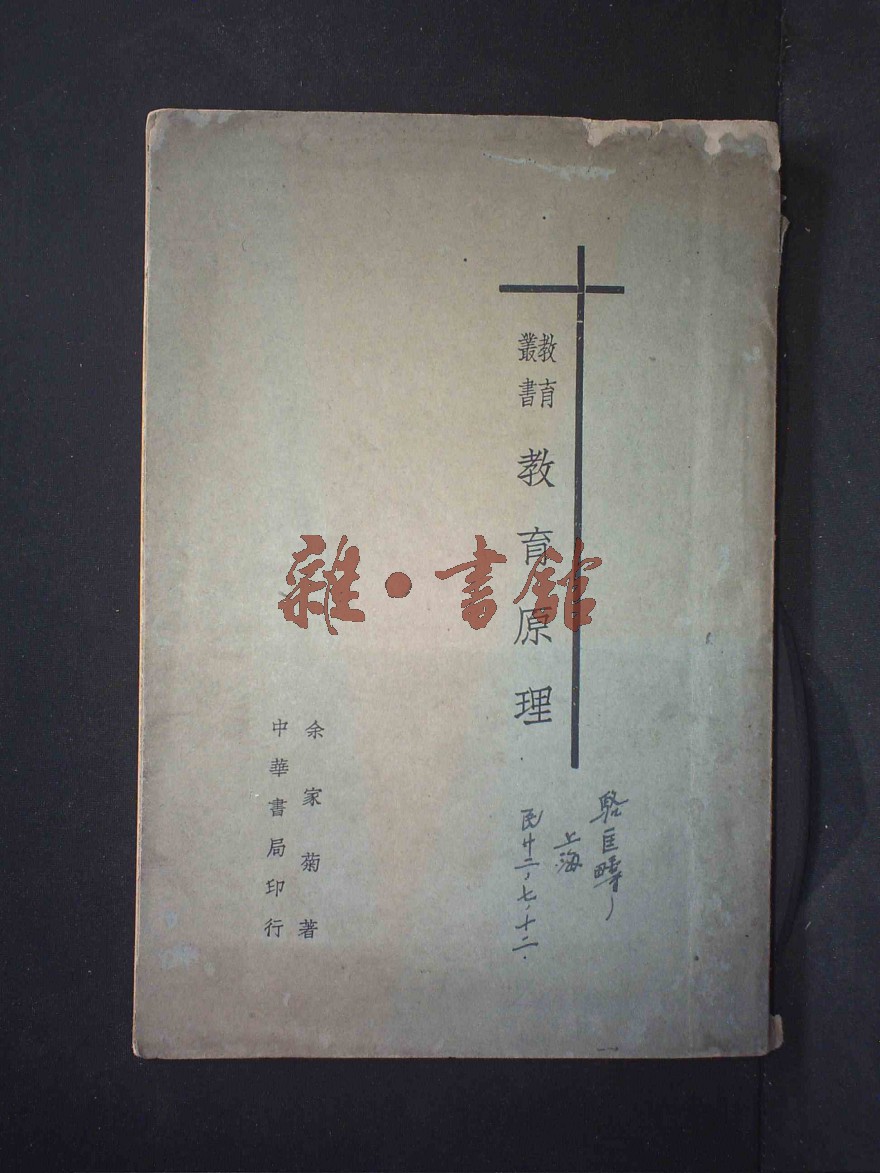 教育
叢書
教育原理
駱匡疇
上海
民廿二,七,十二.
余家菊著
中華書局印行
雜·書館